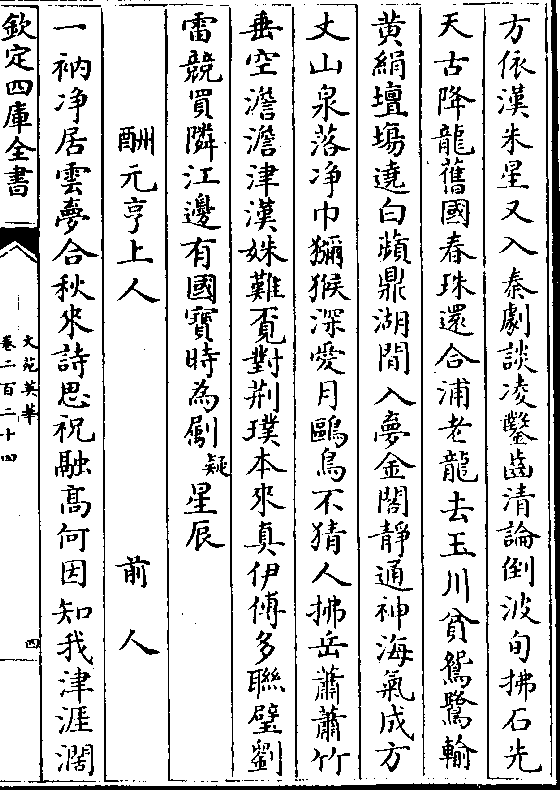 方依漢朱星又入秦劇談凌鑿齒清論倒波旬拂石先
天古降龍舊國春珠還合浦老龍去玉川貧鴛鷺輸
黃絹壇場遶白蘋鼎湖閒入夢金閣靜通神海氣成方
丈山泉落淨巾獼猴深愛月鷗鳥不猜人拂岳蕭蕭竹
垂空澹澹津漢姝難覓對荆璞本來真伊傅多聯璧劉
雷競買隣江邊有國寶時為劚疑星辰
酬元亨上人 前人
一衲净居雲夢合秋來詩思祝融高何因知我津涯濶
欽定四庫全書
文苑英華
卷二百二十四
四